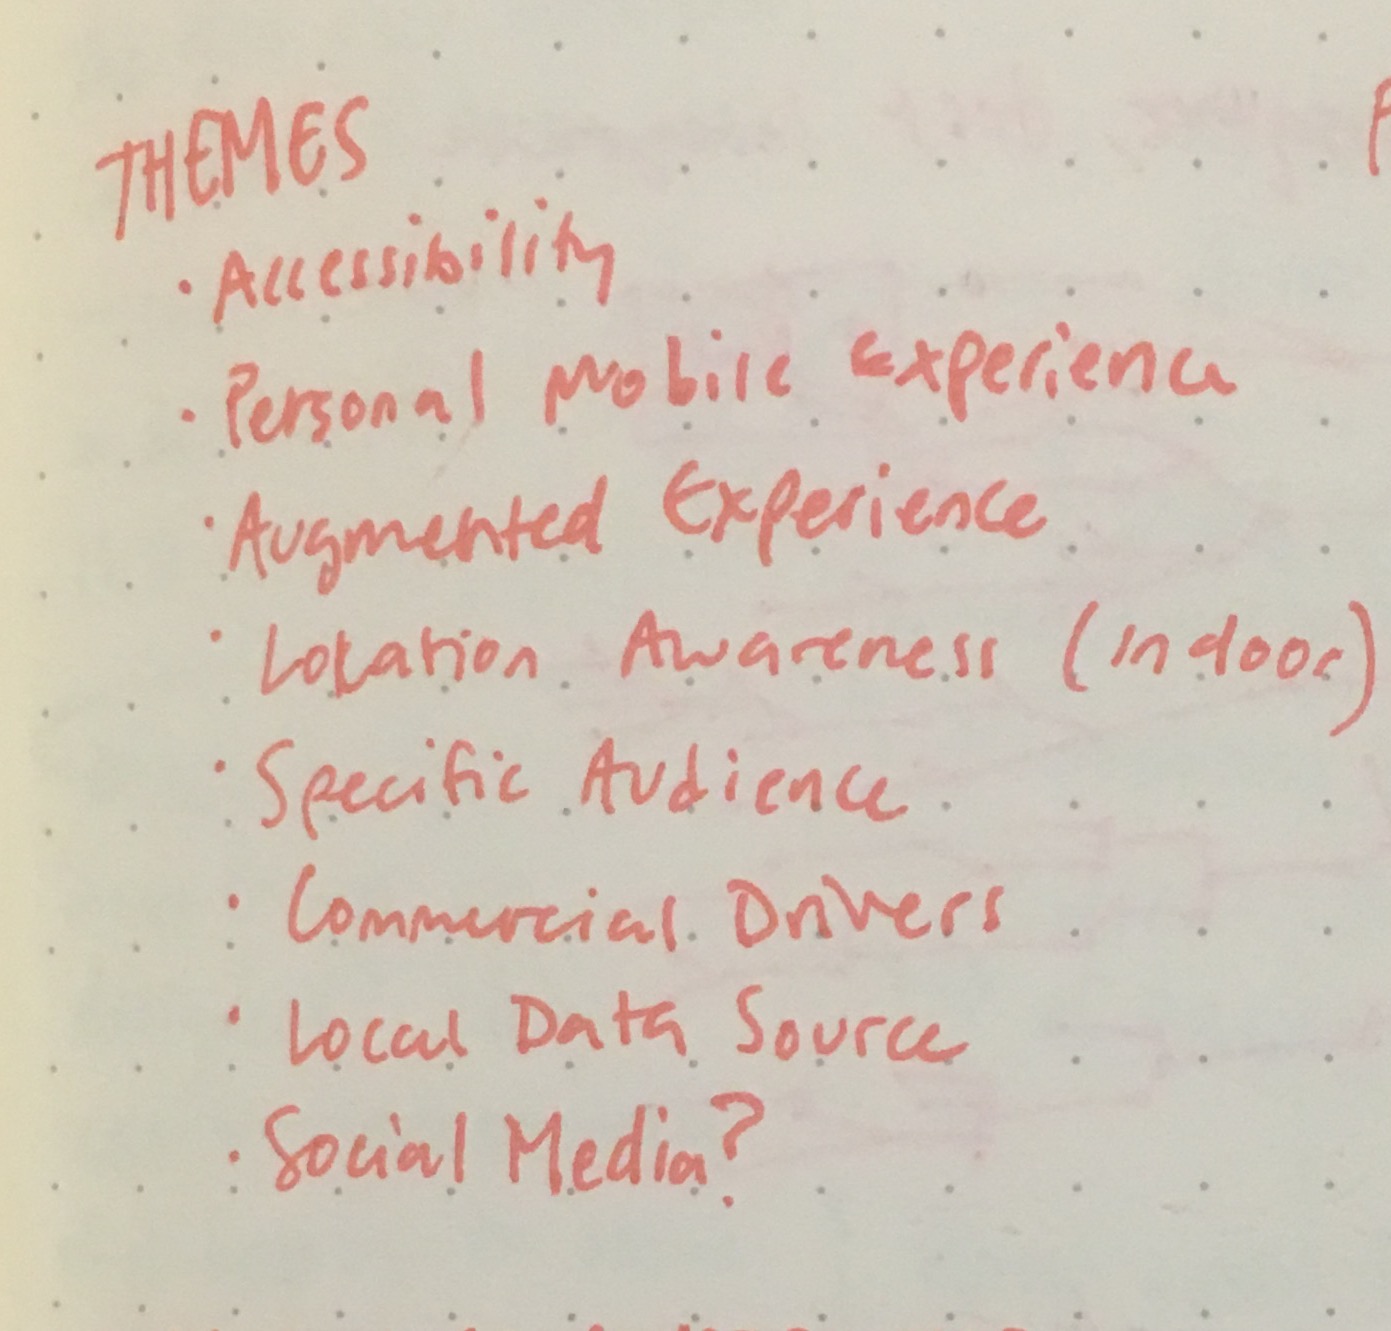 THEMES
· Accessibility
· Personal Mobile Experience
· Augmented Experience
· Location Awareness (Indoor)
· Specific Audience
· Commercial Drivers
· Local Data Source
· Social Media?